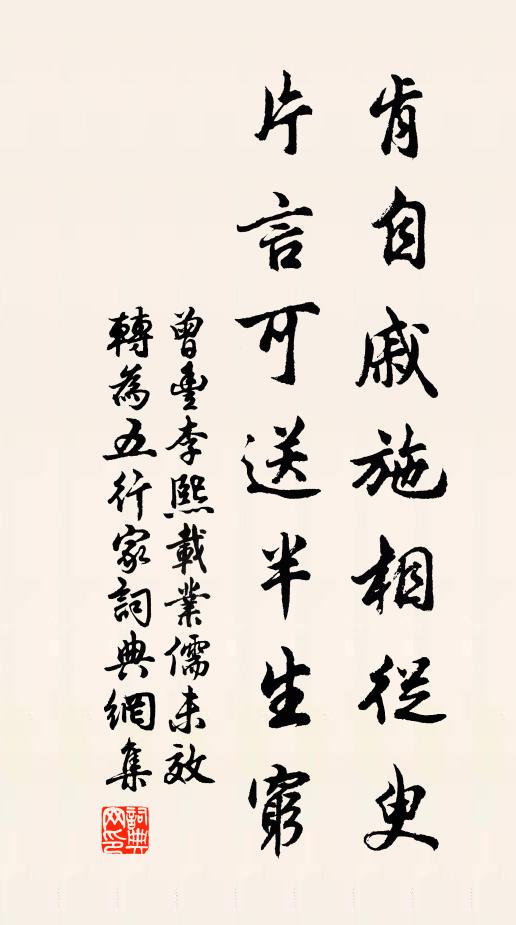 肯自戚施相從臾
片言可送半生窮
曾豐李熙載業儒未效
轉為五行家詞典網集
詞典网印